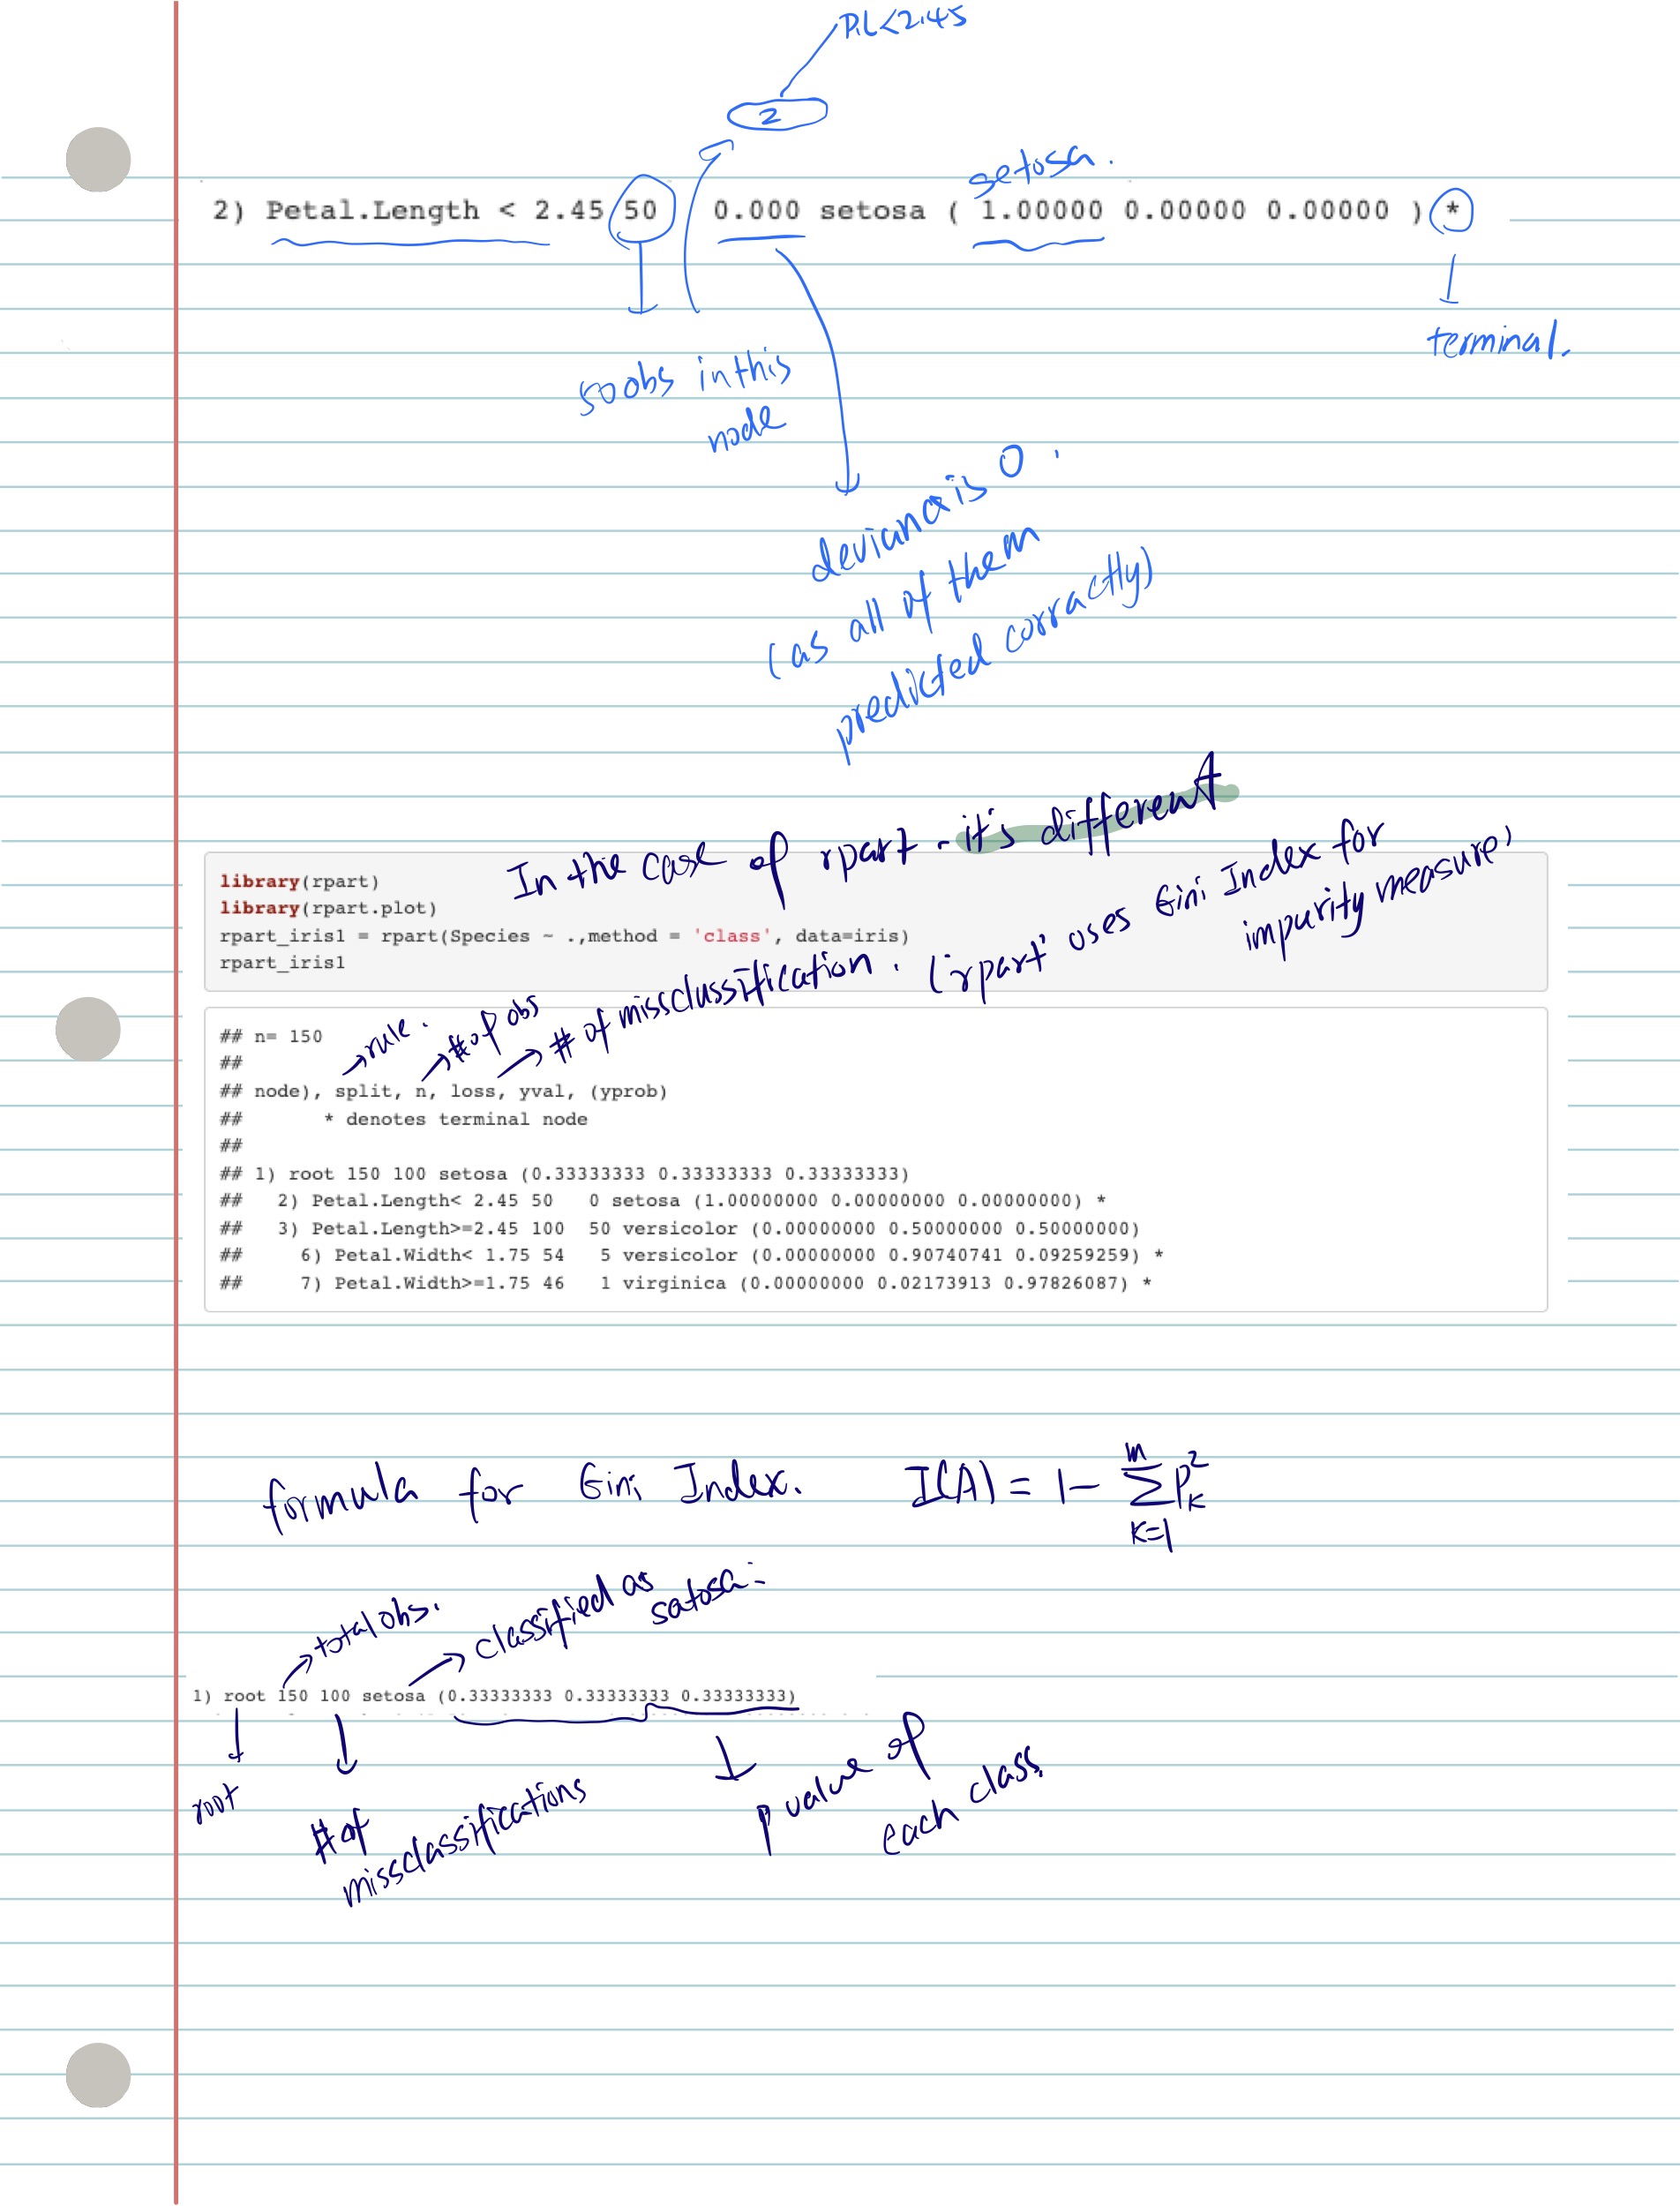 P.L<2.45
2
setosa.
2) Petal.Length < 2.45 50 0.000 setosa ( 1.00000 0.00000 0.00000 ) *
terminal.
50 obs in this
node
deviance is 0.
(as all of them
predicted corractly)
In the case of rpart - it's different
library(rpart)
library(rpart.plot)
rpart_iris1 = rpart(Species ~ .,method = 'class', data=iris)
rpart_iris1
('rpart' uses Gini Index for
impurity measure)
→rule. →# of obs → # of missclussification.
## n= 150
##
## node), split, n, loss, yval, (yprob)
##       * denotes terminal node
##
## 1) root 150 100 setosa (0.33333333 0.33333333 0.33333333)
##   2) Petal.Length< 2.45 50   0 setosa (1.00000000 0.00000000 0.00000000) *
##   3) Petal.Length>=2.45 100  50 versicolor (0.00000000 0.50000000 0.50000000)
##     6) Petal.Width< 1.75 54   5 versicolor (0.00000000 0.90740741 0.09259259) *
##     7) Petal.Width>=1.75 46   1 virginica (0.00000000 0.02173913 0.97826087) *
formula for Gini Index. I(A) = 1 - ∑_{k=1}^{m} P_k^2
→total obs. → classified as
satosa.
1) root 150 100 setosa (0.33333333 0.33333333 0.33333333)
root
# of
missclassifications
p value of
each class.